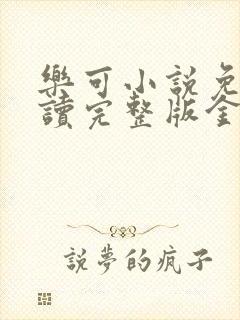 樂可小說免
讀完整版全
說夢的瘋子